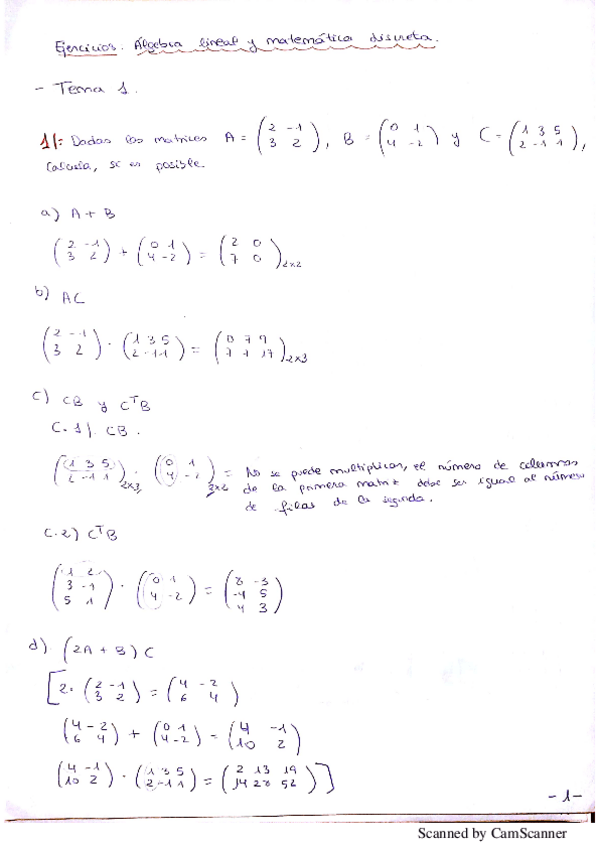 Ejercicios. Álgebra lineal y matemática discreta.
- Tema 1.
1|: Dadas las matrices A = (2 -1 / 3 2), B = (0 1 / 4 -2) y C = (1 3 5 / 2 -1 1),
calcula, si es posible.
a) A + B
(2 -1 / 3 2) + (0 1 / 4 -2) = (2 0 / 7 0)2x2
b) AC
(2 -1 / 3 2) · (1 3 5 / 2 -1 1) = (0 7 9 / 7 7 17)2x3
c) CB y CᵀB
C.1). CB.
(1 3 5 / 2 -1 1)2x3 · (0 1 / 4 -2)2x2 = No se puede multiplicar, el número de columnas
de la primera matriz debe ser igual al número
de filas de la segunda.
C.2) CᵀB
(1 2 / 3 -1 / 5 1) · (0 1 / 4 -2) = (8 -3 / -4 5 / 4 3)
d). (2A + B) C
[2 · (2 -1 / 3 2) = (4 -2 / 6 4)
(4 -2 / 6 4) + (0 1 / 4 -2) = (4 -1 / 10 2)
(4 -1 / 10 2) · (1 3 5 / 2 -1 1) = (2 13 19 / 14 28 52)]
- 1 -
Scanned by CamScanner